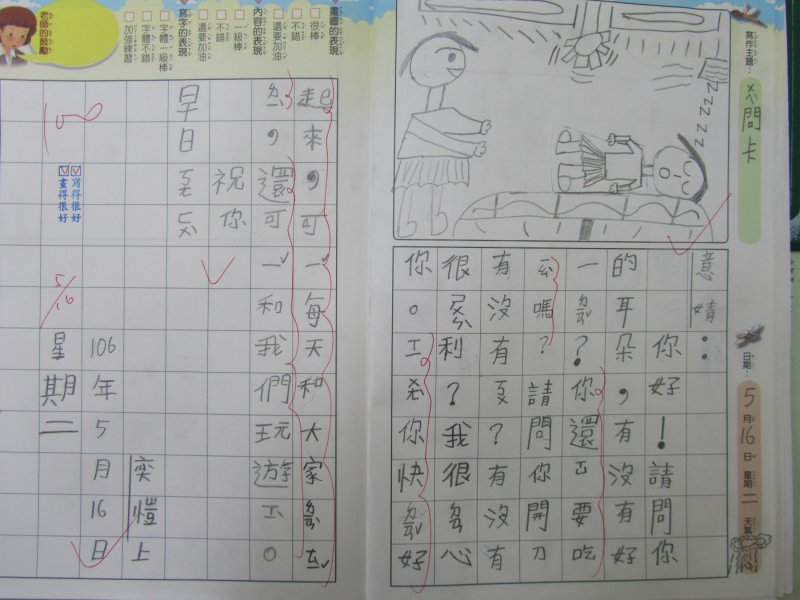 寫作主題：
問卡
日期：5月16日 星期二 天氣
ZZZZZ
意婧：
你好！請問你
的耳朵，有沒有好
一？你還要吃
嗎？請問你開刀
有沒有？有沒有
很利？我很心
你。你快好
畫圖的表現
很棒
不錯
還要加油
內容的表現
一級棒
不錯
還要加油
寫字的表現
字體一級棒
字體不錯
加強練習
老師的鼓勵
起來，可ㄧˇ每天和大家
，還可ㄧˇ和我們玩遊。
祝你
早日
奕愷上
106年5月16日
星期二
100
寫得很好
畫得很好
5/16